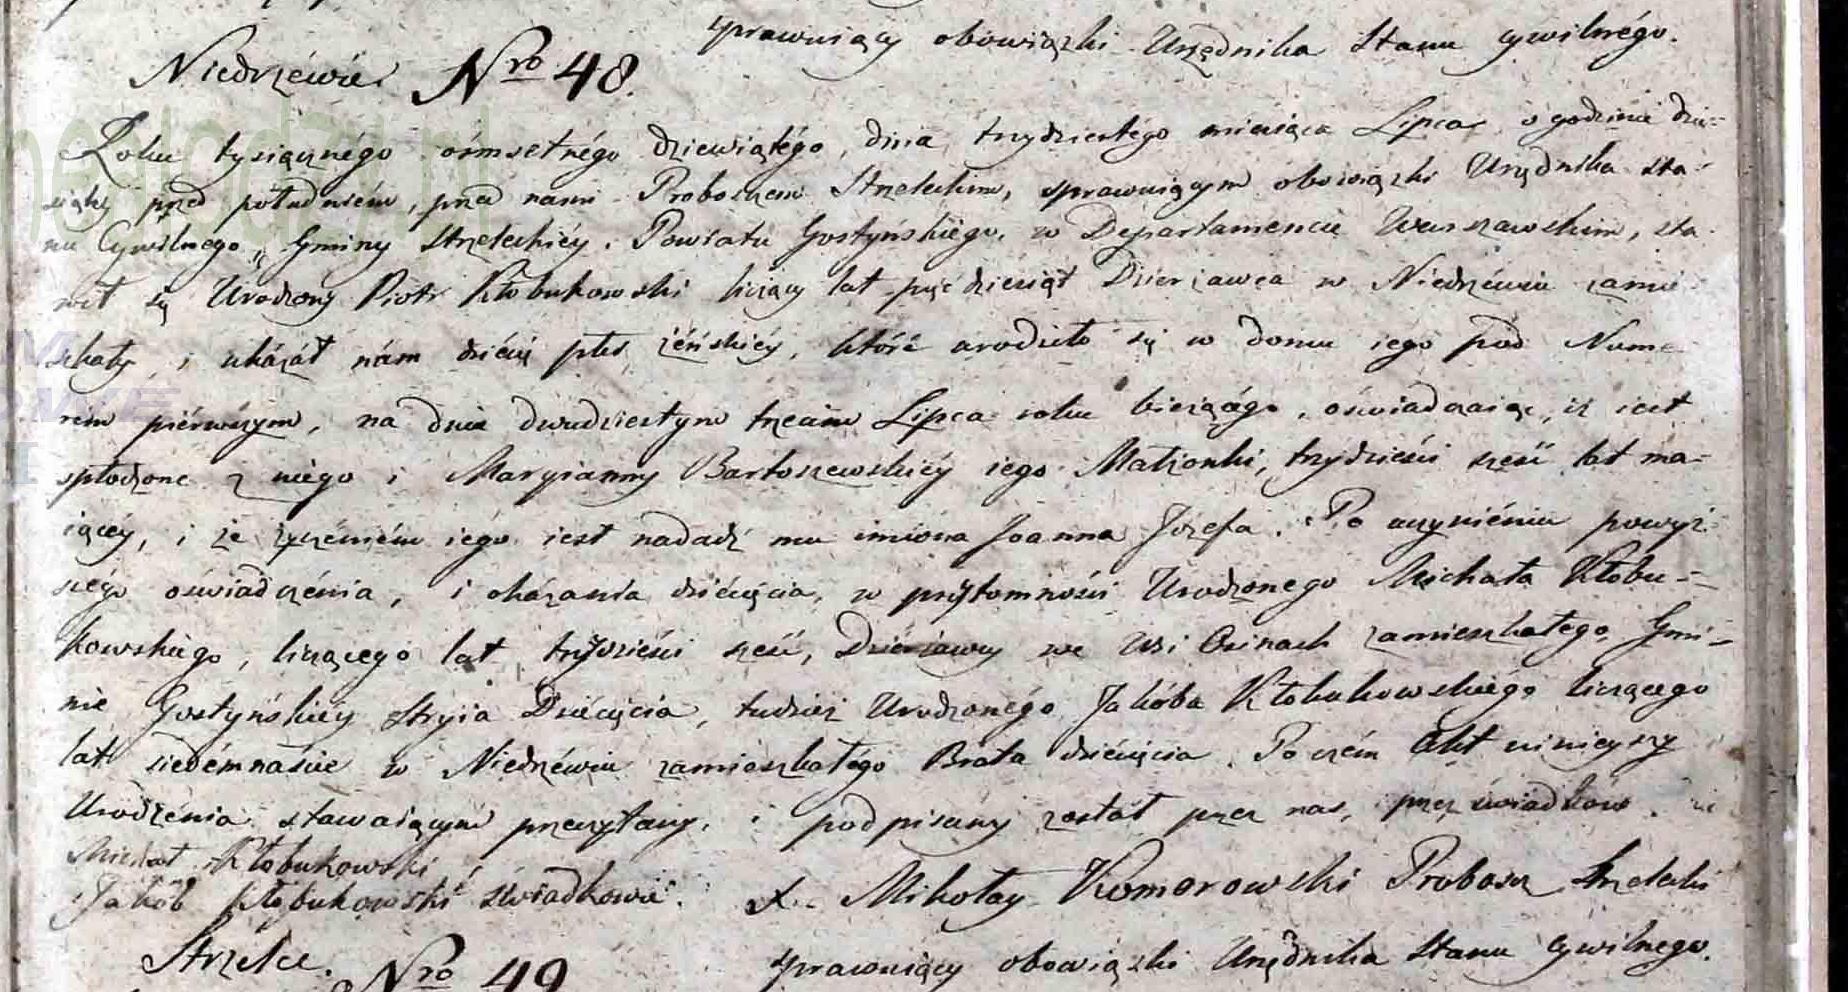 sprawuiący obowiązki Urzędnika Stanu cywilnégo.
Niedrzéwie Nro 48.
Roku tysiącznégo ośmsetnégo dziewiątégo, dnia trzydziestégo miesiąca Lipca o godzinie dzie=
siątéj przed południém, przed nami Proboszczem Strzeleckim, sprawuiącym obowiązki Urzędnika sta=
nu Cywilnego, Gminy Strzeleckiéy, Powiatu Gostyńskiégo, w Departamencie Warszawskim, sta=
wił się Urodzony Piotr Kłobukowski liczący lat pięcdziesiąt Dzierzawca w Niedrzéwiu zamie=
szkały, i ukázáł nám dziécię płci żéńskiéy, któré urodziło się w domu iego pod Nume=
rém piérwszym, na dniu dwudziestym trzecim Lipca roku bieżącégo, oświadczaiąc, iż iest
spłodzone z niégo i Maryianny Bartoszewskiéy iego Małżonki, trzydzieści sześć lat ma=
iącéy, i że życzéniém iégo iest nadadź mu imiona Joanna Józefa. Po uczyniéniu powyż=
szégo oświadczénia, i okázania dziécięcia, w przytomności Urodzonego Michała Kłobu=
kowskiégo, liczącego lat trzydzieści sześć, Dzierżawcy we Wsi Osinach zamieszkałego, Gmi=
nie Gostyńskiéy Stryia Dziécięcia, tudzież Urodzonégo Jakóba Kłobukowskiégo liczącego
lat siedémnaście w Niedrzéwiu zamieszkałego Brata dziécięcia. Po czém Akt ninieyszy
Urodzénia stawaiącymi przeczytany, i podpisany został przez nas, i przez świadków.
Michał Kłobukowski
Jakób Kłobukowski świadkowie. X. Mikołay Komorowski Proboszcz Strzelecki
Strzelce. Nro 49 sprawuiący obowiązki Urzędnika Stanu Cywilnego.